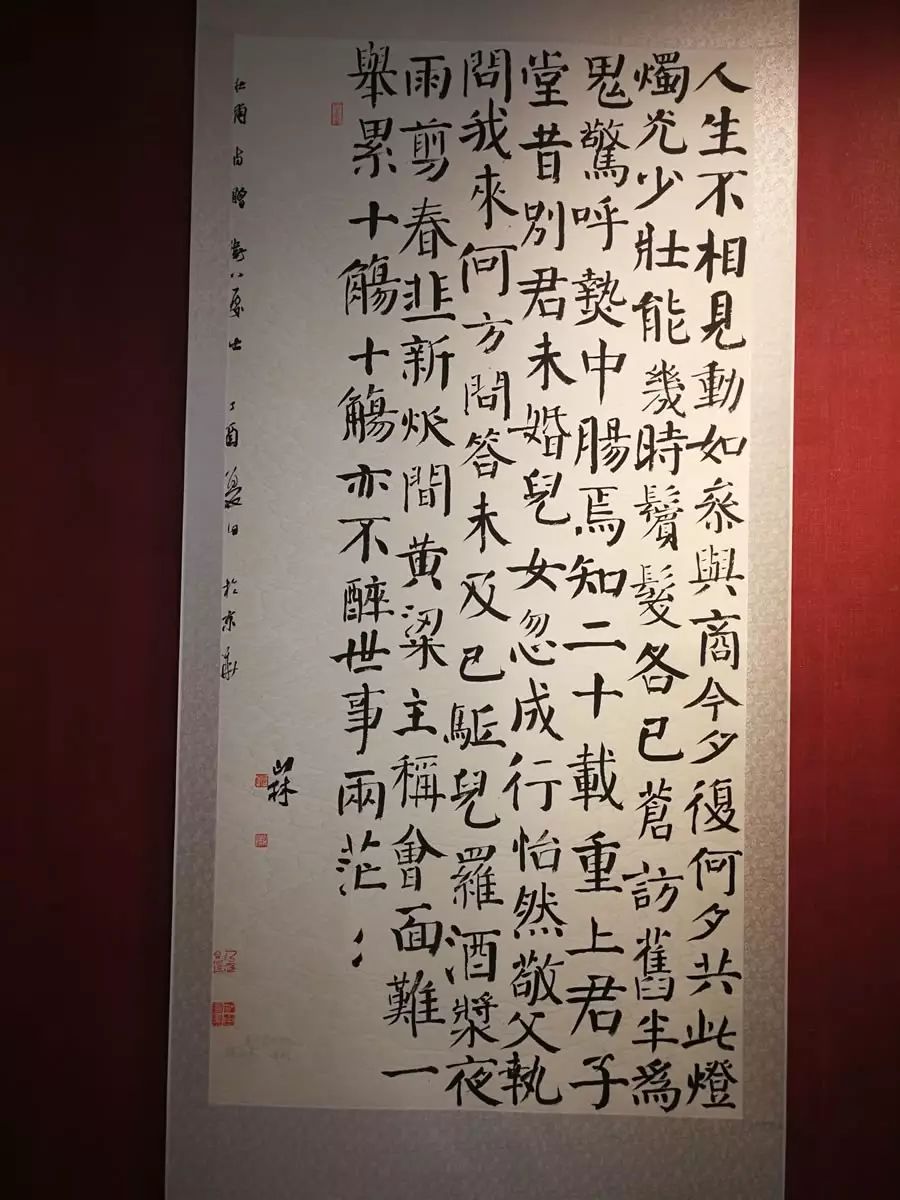 人生不相見動如参與商今夕復何夕共此燈
燭光少壯能幾時鬢髮各已蒼訪舊半爲
鬼驚呼熱中腸焉知二十載重上君子
堂昔別君未婚兒女忽成行怡然敬父執
問我來何方問答未及已驅兒羅酒漿夜
雨剪春韭新炊間黄粱主稱會面難一
舉累十觴十觴亦不醉世事兩茫〻
杜甫詩贈衛八處士 丁酉夏日於京華
山林